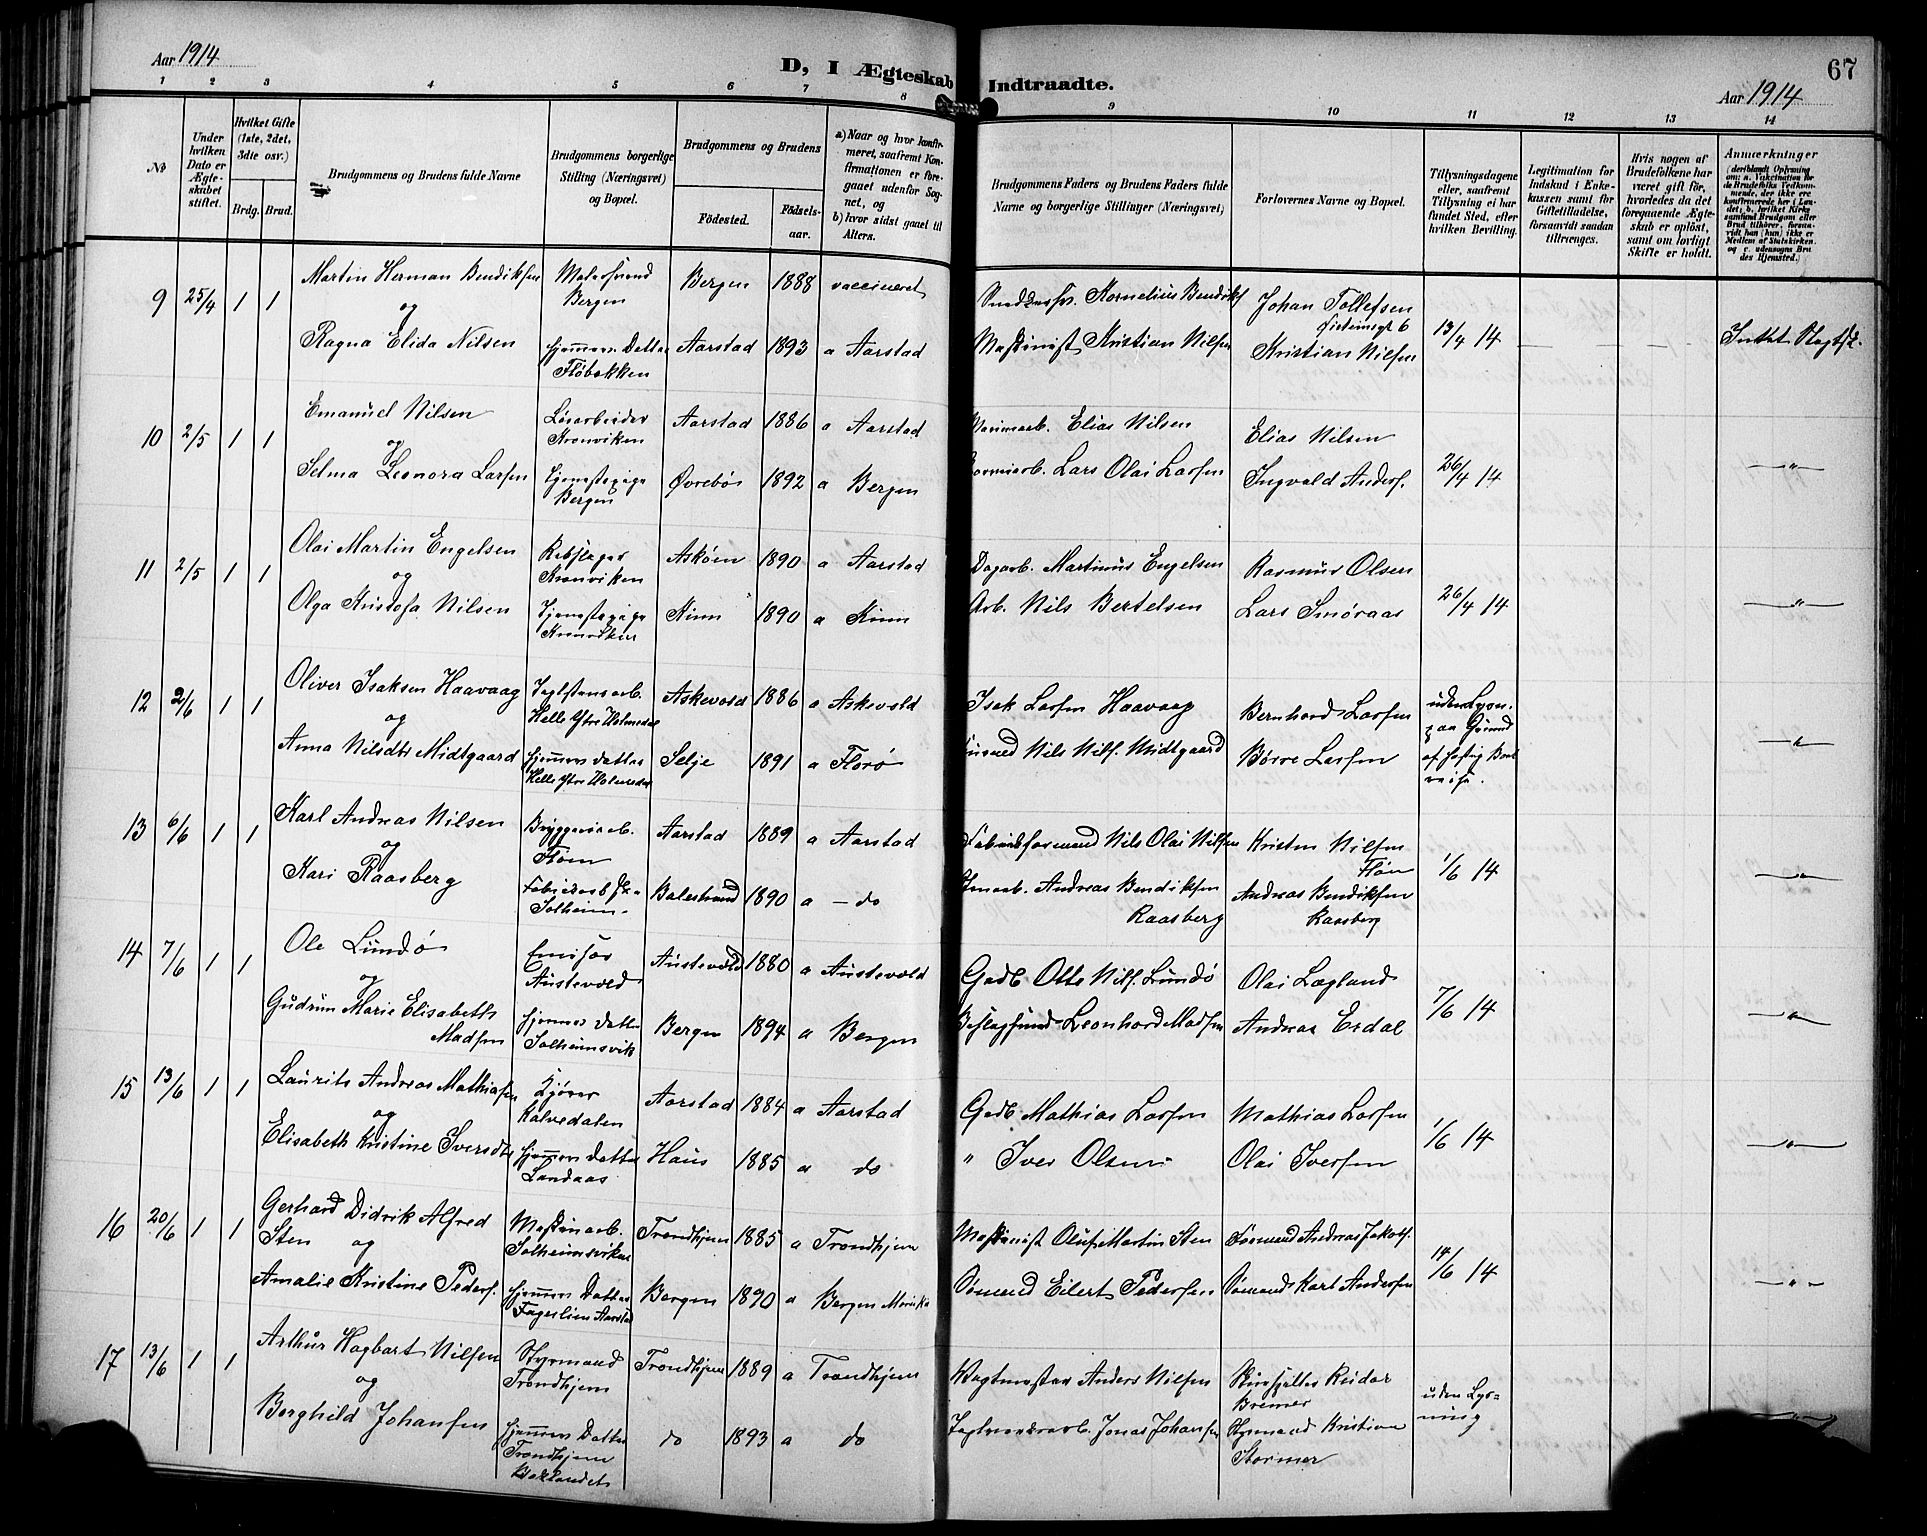 Aar 1914
D, I Ægteskab Indtraadte.
67
Aar 1914
1 2 3 4 5 6 7 8 9 10 11 12 13 14
No
Under hvilken Dato er Ægteskabet stiftet.
Hvilket Gifte (1ste, 2det, 3die osv.)
Brdg. Brud.
Brudgommens og Brudens fulde Navne
Brudgommens borgerlige Stilling (Næringsvei) og Bopæl.
Brudgommens og Brudens
Fødested.
Fødselsaar.
a) Naar og hvor konfirmeret, saafremt Konfirmationen er foregaaet udenfor Sognet, og
b) hvor sidst gaaet til Alters.
Brudgommens Faders og Brudens Faders fulde Navne og borgerlige Stillinger (Næringsvei)
Forlovernes Navne og Bopæl.
Tillysningsdagene eller, saafremt Tillysning ei har fundet Sted, efter hvilken Bevilling.
Legitimation for Indskud i Enkekassen samt for Giftetilladelse, forsaavidt saadan tiltrænges.
Hvis nogen af Brudefolkene har været gift før, hvorledes da det foregaaende Ægteskab er opløst, samt om lovligt Skifte er holdt.
Anmærkninger
9 25/4 1 1 Martin Herman Bendiksen Malersvend Bergen Bergen 1888 vaccineret Kornelius Bendiks Johan Tollefsen 13/4 14
og
Ragna Elida Nilsen Hjemmev. Datter Fløbakken Aarstad 1893 a Aarstad Maskinist Kristian Nilsen Kristian Nilsen
10 2/5 1 1 Emanuel Nilsen Løsarbeider Kronviken Aarstad 1886 a Aarstad Elias Nilsen Elias Nilsen 26/4 14 — " —
og
Selma Leonora Larsen Tjenestepige Bergen Øvrebø 1892 a Bergen Lars Olai Larsen Ingvald Anders.
11 2/5 1 1 Olai Martin Engelsen Rebslager Kronviken Askøen 1890 a Aarstad Dagarb. Martinus Engelsen Rasmus Olsen 26/4 14 — " —
og
Olga Kristofa Nilsen Tjenestepige Kronviken Kinn 1890 a Kinn Arb. Nils Bertelsen Lars Smøraas
12 2/6 1 1 Oliver Isaksen Haavaag Helle Ytre Holmedal Askevold 1886 a Askevold Isak Larsen Haavaag Bernhard Larsen uden Lysn. paa Grund af hastig Bortreise. — " —
og
Anna Nilsdtr Midtgaard Hjemmev. Datter Helle Ytre Holmedal Selje 1891 a Florø Nils Nils. Midtgaard Børre Larsen
13 6/6 1 1 Karl Andreas Nilsen Bryggeriarb. Fløen Aarstad 1889 a Aarstad Fabrikformand Nils Olai Nilsen Kristen Nilsen Fløen 1/6 14 — " —
og
Kari Raasberg Solheim Balestrand 1890 a — do Andreas Bendiksen Raasberg Andreas Bendiksen Raasberg
14 7/6 1 1 Ole Lundø Emisær Austevold Austevold 1880 a Austevold Gadb. Otto Nils. Lundø Olai Lægland 7/6 14 — " —
og
Gudrun Marie Elisabeth Madsen Hjemmev. Datter Solheimsvik Bergen 1894 a Bergen Leonhard Madsen Andreas Erdal
15 13/6 1 1 Laurits Andreas Mathiasen Kjører Kalvedalen Aarstad 1884 a Aarstad Gadb. Mathias Larsen Mathias Larsen 1/6 14 — " —
og
Elisabeth Kristine Iversdtr Hjemmev. Datter Landaas Haus 1885 a do " Iver Olsen Olai Iversen
16 20/6 1 1 Gerhard Didrik Alfred Sten Maskinarb. Solheimsviken Trondhjem 1885 a Trondhjem Maskinist Oluf Martin Sten Formand Andreas Jakobs. 14/6 14 — " —
og
Amalie Kristine Peders. Hjemmev. Datter Fagerlien Aarstad Bergen 1890 a Bergen Sømand Eilert Pedersen Sømand Karl Andersen
17 13/6 1 1 Arthur Hagbart Nilsen Styrmand Trondhjem Trondhjem 1889 a Trondhjem Vagtmester Anders Nilsen Reidar Bremer uden Lysning — " —
og
Borghild Johansen Hjemmev. Datter Trondhjem Baklandet do 1893 a do Jonas Johansen Styrmand Kristian Stormer